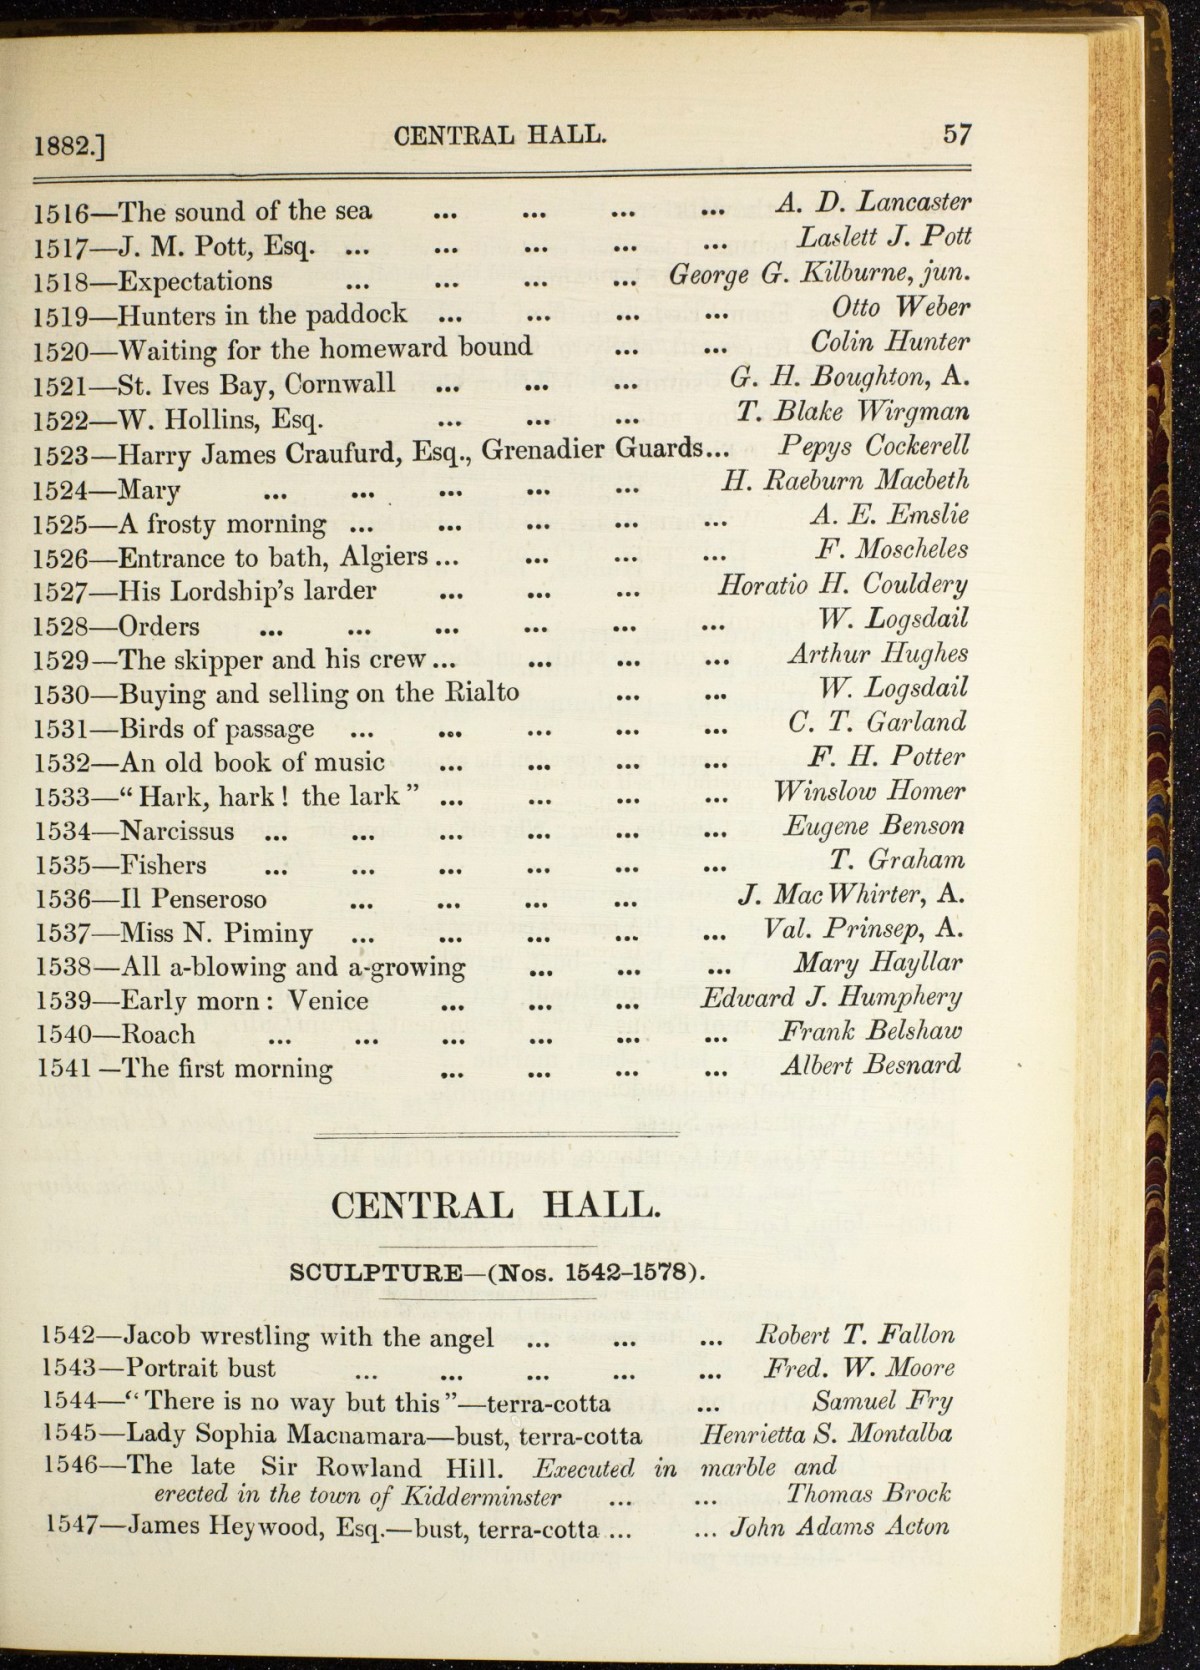 1882.] CENTRAL HALL. 57
1516—The sound of the sea ... ... ... ... A. D. Lancaster
1517—J. M. Pott, Esq. ... ... ... ... ... Laslett J. Pott
1518—Expectations ... ... ... ... George G. Kilburne, jun.
1519—Hunters in the paddock ... ... ... ... Otto Weber
1520—Waiting for the homeward bound ... ... Colin Hunter
1521—St. Ives Bay, Cornwall ... ... ... G. H. Boughton, A.
1522—W. Hollins, Esq. ... ... ... T. Blake Wirgman
1523—Harry James Craufurd, Esq., Grenadier Guards... Pepys Cockerell
1524—Mary ... ... ... ... ... H. Raeburn Macbeth
1525—A frosty morning ... ... ... ... ... A. E. Emslie
1526—Entrance to bath, Algiers ... ... ... ... F. Moscheles
1527—His Lordship's larder ... ... ... Horatio H. Couldery
1528—Orders ... ... ... ... ... ... W. Logsdail
1529—The skipper and his crew ... ... ... ... Arthur Hughes
1530—Buying and selling on the Rialto ... ... W. Logsdail
1531—Birds of passage ... ... ... ... ... C. T. Garland
1532—An old book of music ... ... ... ... F. H. Potter
1533—“Hark, hark! the lark” ... ... ... ... Winslow Homer
1534—Narcissus ... ... ... ... ... ... Eugene Benson
1535—Fishers ... ... ... ... ... ... T. Graham
1536—Il Penseroso ... ... ... ... J. MacWhirter, A.
1537—Miss N. Piminy ... ... ... ... ... Val. Prinsep, A.
1538—All a-blowing and a-growing ... ... ... Mary Hayllar
1539—Early morn: Venice ... ... ... Edward J. Humphery
1540—Roach ... ... ... ... ... ... Frank Belshaw
1541—The first morning ... ... ... ... Albert Besnard
CENTRAL HALL.
SCULPTURE—(Nos. 1542–1578).
1542—Jacob wrestling with the angel ... ... ... Robert T. Fallon
1543—Portrait bust ... ... ... ... ... Fred. W. Moore
1544—“There is no way but this”—terra-cotta ... Samuel Fry
1545—Lady Sophia Macnamara—bust, terra-cotta Henrietta S. Montalba
1546—The late Sir Rowland Hill. Executed in marble and
erected in the town of Kidderminster ... ... Thomas Brock
1547—James Heywood, Esq.—bust, terra-cotta ... ... John Adams Acton